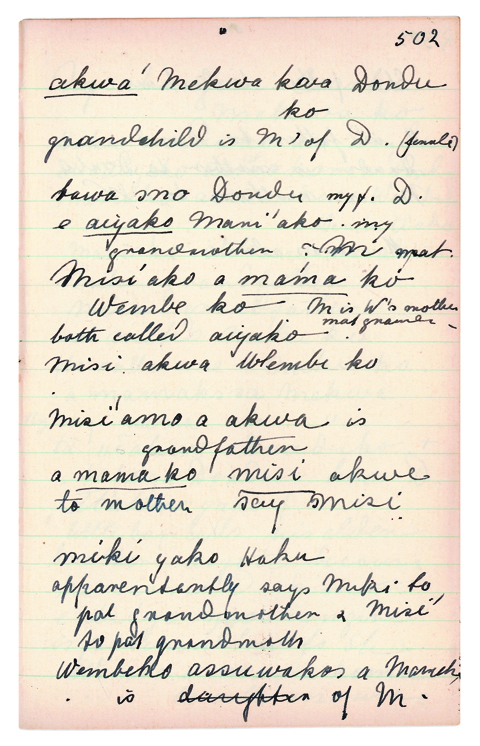 502
akwa' Mekwa kwa Dondu
ko
grandchild is M's of D. (female)
bawa sno Dondu my f. D.
e aiyako Mani'ako. my
grandmother M mat.
Misi'ako a mama ko
Wembe ko M is W's mother
both called aiyako
misi akwa Wembe ko
Misi'amo a akwa is
grandfather
a mama ko misi akwe
to mother say Misi
miki yako Haku
apparentantly says Miki to
pat grandmother & Misi
to pat grandmoth
Wembeko assuwakos a
is daughter of M.